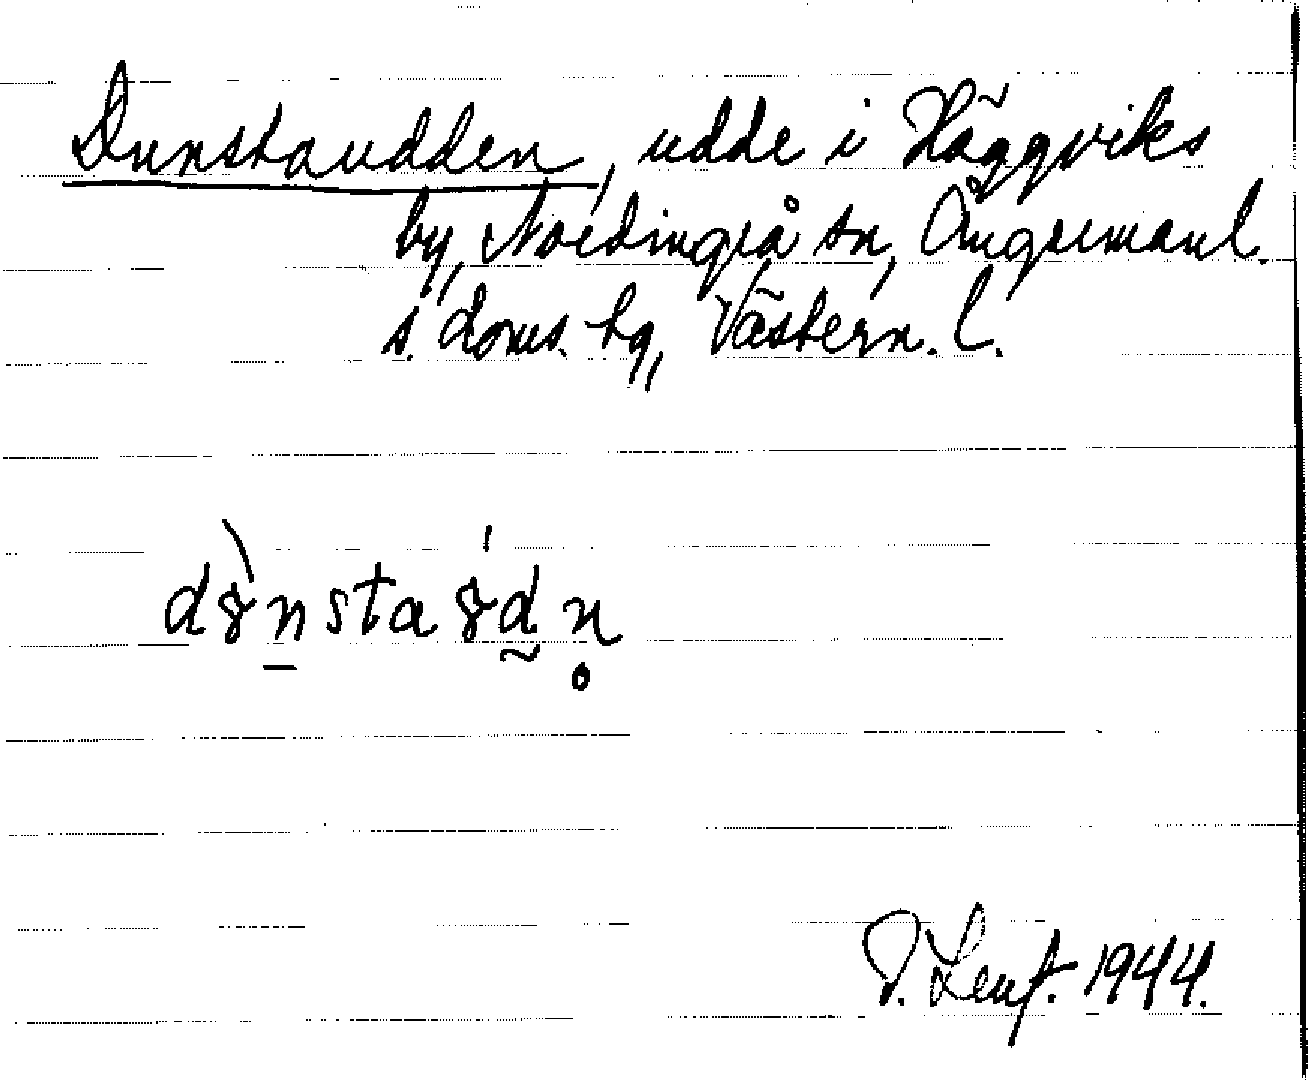 Dunstaudden, udde i Häggviks
by, Nordingrå sn, Ångermanl.
s. doms. tg, Västern. l.
d8̀nsta8́dn̥
1944.